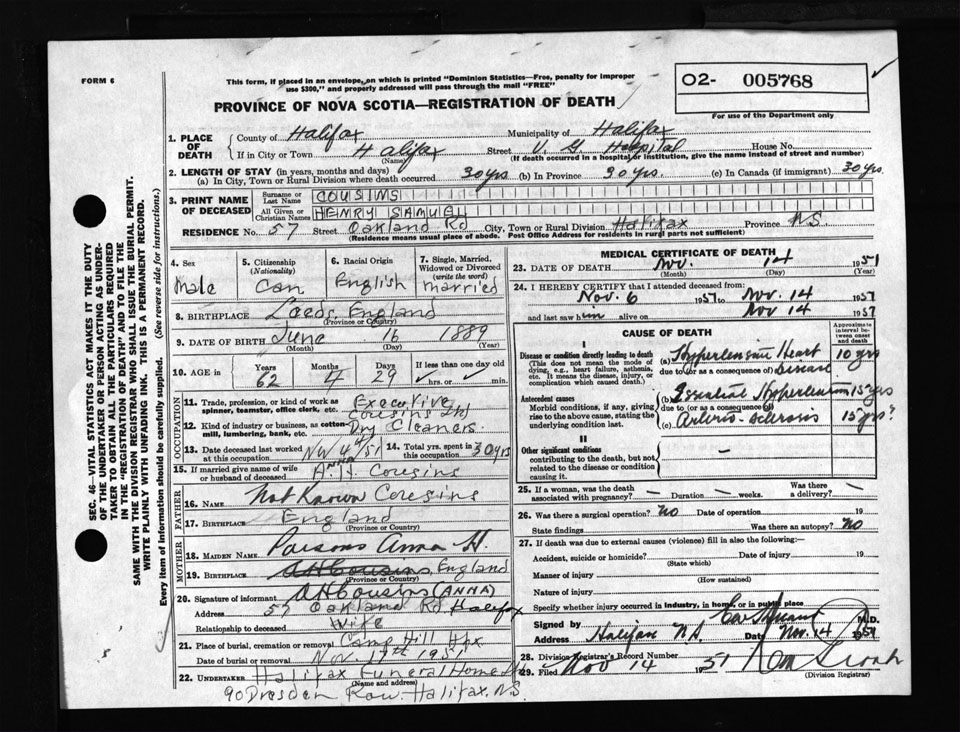 FORM 6
This form, if placed in an envelope, on which is printed "Dominion Statistics—Free, penalty for improper
use $300," and properly addressed will pass through the mail "FREE"
O2- 005768
For use of the Department only
PROVINCE OF NOVA SCOTIA—REGISTRATION OF DEATH
1. PLACE OF DEATH County of Halifax Municipality of Halifax
If in City or Town Halifax Street V. G. Hospital House No.
(Name) (If death occurred in a hospital or institution, give the name instead of street and number)
2. LENGTH OF STAY (in years, months and days)
(a) In City, Town or Rural Division where death occurred 30 yrs. (b) In Province 30 yrs. (c) In Canada (if immigrant) 30 yrs
3. PRINT NAME OF DECEASED Surname or Last Name COUSINS
All Given or Christian Names HENRY SAMUEL
RESIDENCE No. 57 Street Oakland Rd City, Town or Rural Division Halifax Province N.S.
(Residence means usual place of abode. Post Office Address for residents in rural parts not sufficient)
4. Sex Male
5. Citizenship (Nationality) Can
6. Racial Origin English
7. Single, Married, Widowed or Divorced (write the word) married
8. BIRTHPLACE Leeds, England
(Province or Country)
9. DATE OF BIRTH June 16 1889
(Month) (Day) (Year)
10. AGE in Years Months Days If less than one day old
62 4 29 hrs. or min.
OCCUPATION
11. Trade, profession, or kind of work as spinner, teamster, office clerk, etc. Executive
Cousins Ltd
12. Kind of industry or business, as cotton-mill, lumbering, bank, etc. Dry Cleaners.
13. Date deceased last worked at this occupation Nov 4/51 14. Total yrs. spent in this occupation 30 yrs
15. If married give name of wife or husband of deceased A. H. Cousins
FATHER
16. NAME Not Known Cousins
17. BIRTHPLACE England
(Province or Country)
MOTHER
18. MAIDEN NAME Parsons Anna H.
19. BIRTHPLACE AHCousins, England
(Province or Country)
20. Signature of informant AHCousins (ANNA)
Address 57 Oakland Rd Halifax
Relationship to deceased Wife
21. Place of burial, cremation or removal Camp Hill Hfx
Date of burial or removal Nov. 17th 1951
22. UNDERTAKER Halifax Funeral Home
(Name and address)
90 Dresden Row. Halifax, N.S.
MEDICAL CERTIFICATE OF DEATH
23. DATE OF DEATH Nov. 14 1951
(Month) (Day) (Year)
24. I HEREBY CERTIFY that I attended deceased from:
Nov. 6 1951 to Nov. 14 1951
and last saw him alive on Nov 14 1951
CAUSE OF DEATH
Approximate interval between onset and death
I
Disease or condition directly leading to death
(This does not mean the mode of dying, e.g., heart failure, asthenia, etc. It means the disease, injury, or complication which caused death.)
(a) Hypertensive Heart Disease 10 yrs
due to (or as a consequence of)
Antecedent causes
Morbid conditions, if any, giving rise to the above cause, stating the underlying condition last.
(b) Essential Hypertension 15 yrs
due to (or as a consequence of)
(c) arterio-sclerosis 15 yrs?
II
Other significant conditions
contributing to the death, but not related to the disease or condition causing it. —
25. If a woman, was the death associated with pregnancy? — Duration — weeks. Was there a delivery? —
26. Was there surgical operation? No Date of operation 19
State findings Was there an autopsy? No
27. If death was due to external causes (violence) fill in also the following:—
Accident, suicide or homicide? Date of injury 19
(State which)
Manner of injury
(How sustained)
Nature of injury
Specify whether injury occurred in industry, in home, or in public place
Signed by M.D.
Address Halifax N.S. Date Nov. 14 1951
28. Division Registrar's Record Number
29. Filed Nov 14 1951
(Division Registrar)
SEC. 46—VITAL STATISTICS ACT MAKES IT THE DUTY
OF THE UNDERTAKER OR PERSON ACTING AS UNDER-
TAKER TO OBTAIN ALL THE PARTICULARS REQUIRED
IN THE "REGISTRATION OF DEATH" AND TO FILE THE
SAME WITH THE DIVISION REGISTRAR WHO SHALL ISSUE THE BURIAL PERMIT.
WRITE PLAINLY WITH UNFADING INK. THIS IS A PERMANENT RECORD.
Every item of information should be carefully supplied. (See reverse side for instructions.)